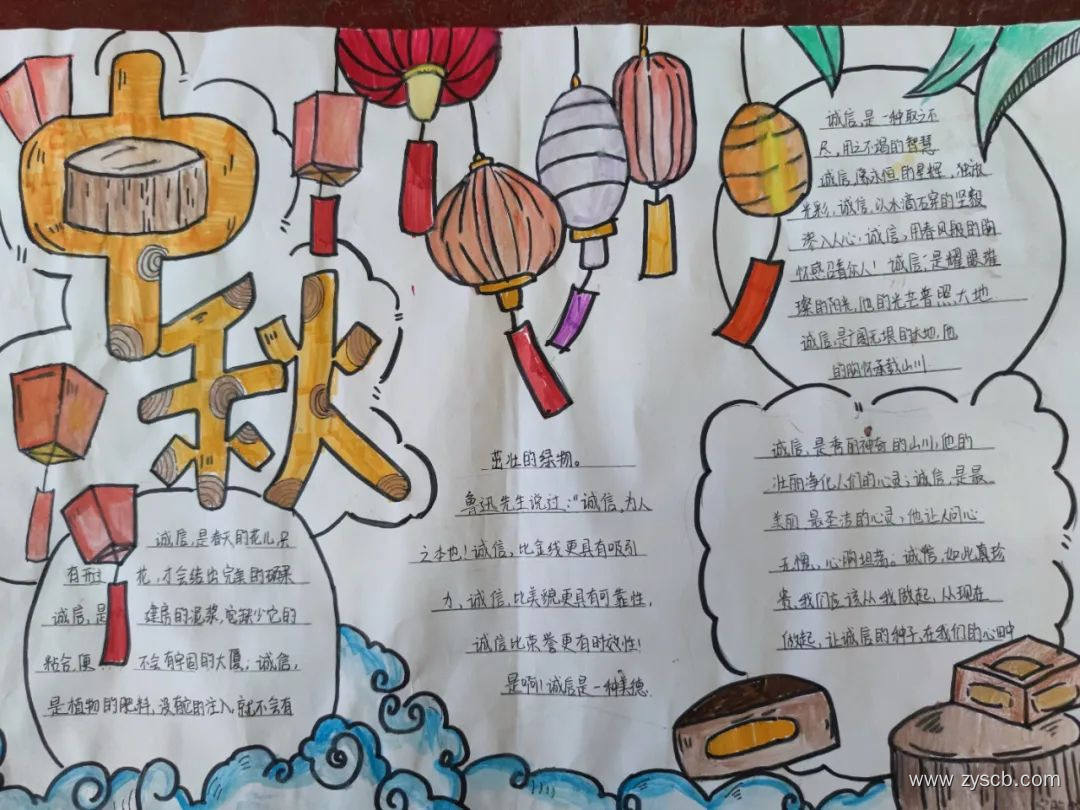 中秋
诚信,是春天的花儿,只
有开过 花,才会结出完美的硕果
诚信,是 建房的泥浆,它缺少它的
粘合,便 不会有牢固的大厦;诚信,
是植物的肥料,没有它的注入,就不会有
茁壮的绿物。
鲁迅先生说过:“诚信,为人
之本也!诚信,比金钱更具有吸引
力,诚信,比美貌更具有可靠性,
诚信比荣誉更有时效性!
是啊!诚信是一种美德.
诚信,是一种取之不
尽,用之不竭的智慧
诚信,像永恒的星辉,独放
光彩,诚信,以水滴石穿的坚毅
深入人心;诚信,用春风般的胸
怀感召着众人!诚信;是耀眼璀
璨的阳光,他的光芒普照大地
诚信,是广阔无垠的大地,他
的胸怀承载山川
诚信,是秀丽神奇的山川,他的
壮丽净化人们的心灵;诚信,是最
美丽 最圣洁的心灵,他让人问心
无愧、心胸坦荡。诚信,如此真珍
贵,我们应该从我做起,从现在
做起,让诚信的种子,在我们的心田中
www.zyscb.com